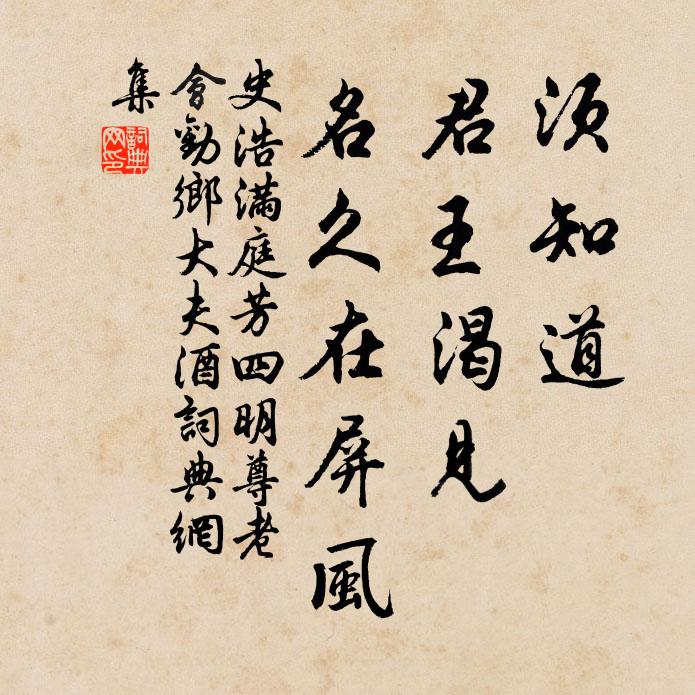 须知道
君王渴見
名久在屏風
史浩滿庭芳四明尊老
會勸鄉大夫酒詞典網
集
詞典
网印